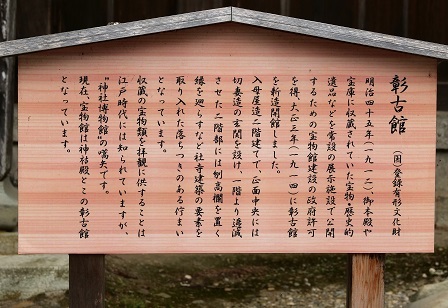 彰古館
(国登録有形文化財
明治四十五年(一九一二)、御本殿や
宝庫に収蔵されていた宝物・歴史的
遺品などを常設の展示施設で公開
するための宝物館建設の政府許可
を得、大正三年(一九一四)に彰古館
を新造開館しました。
入母屋造二階建てで、正面中央には
切妻造の玄関を設け、一階より逓減
させた二階部には刎高欄を置く
縁を廻らすなど社寺建築の要素を
取り入れた落ちつきのある佇まい
となっています。
収蔵の宝物類を拝観に供することは
江戸時代には知られていますが、
"神社博物館"の嚆矢です。
現在、宝物館は神祜殿とこの彰古館
となっています。